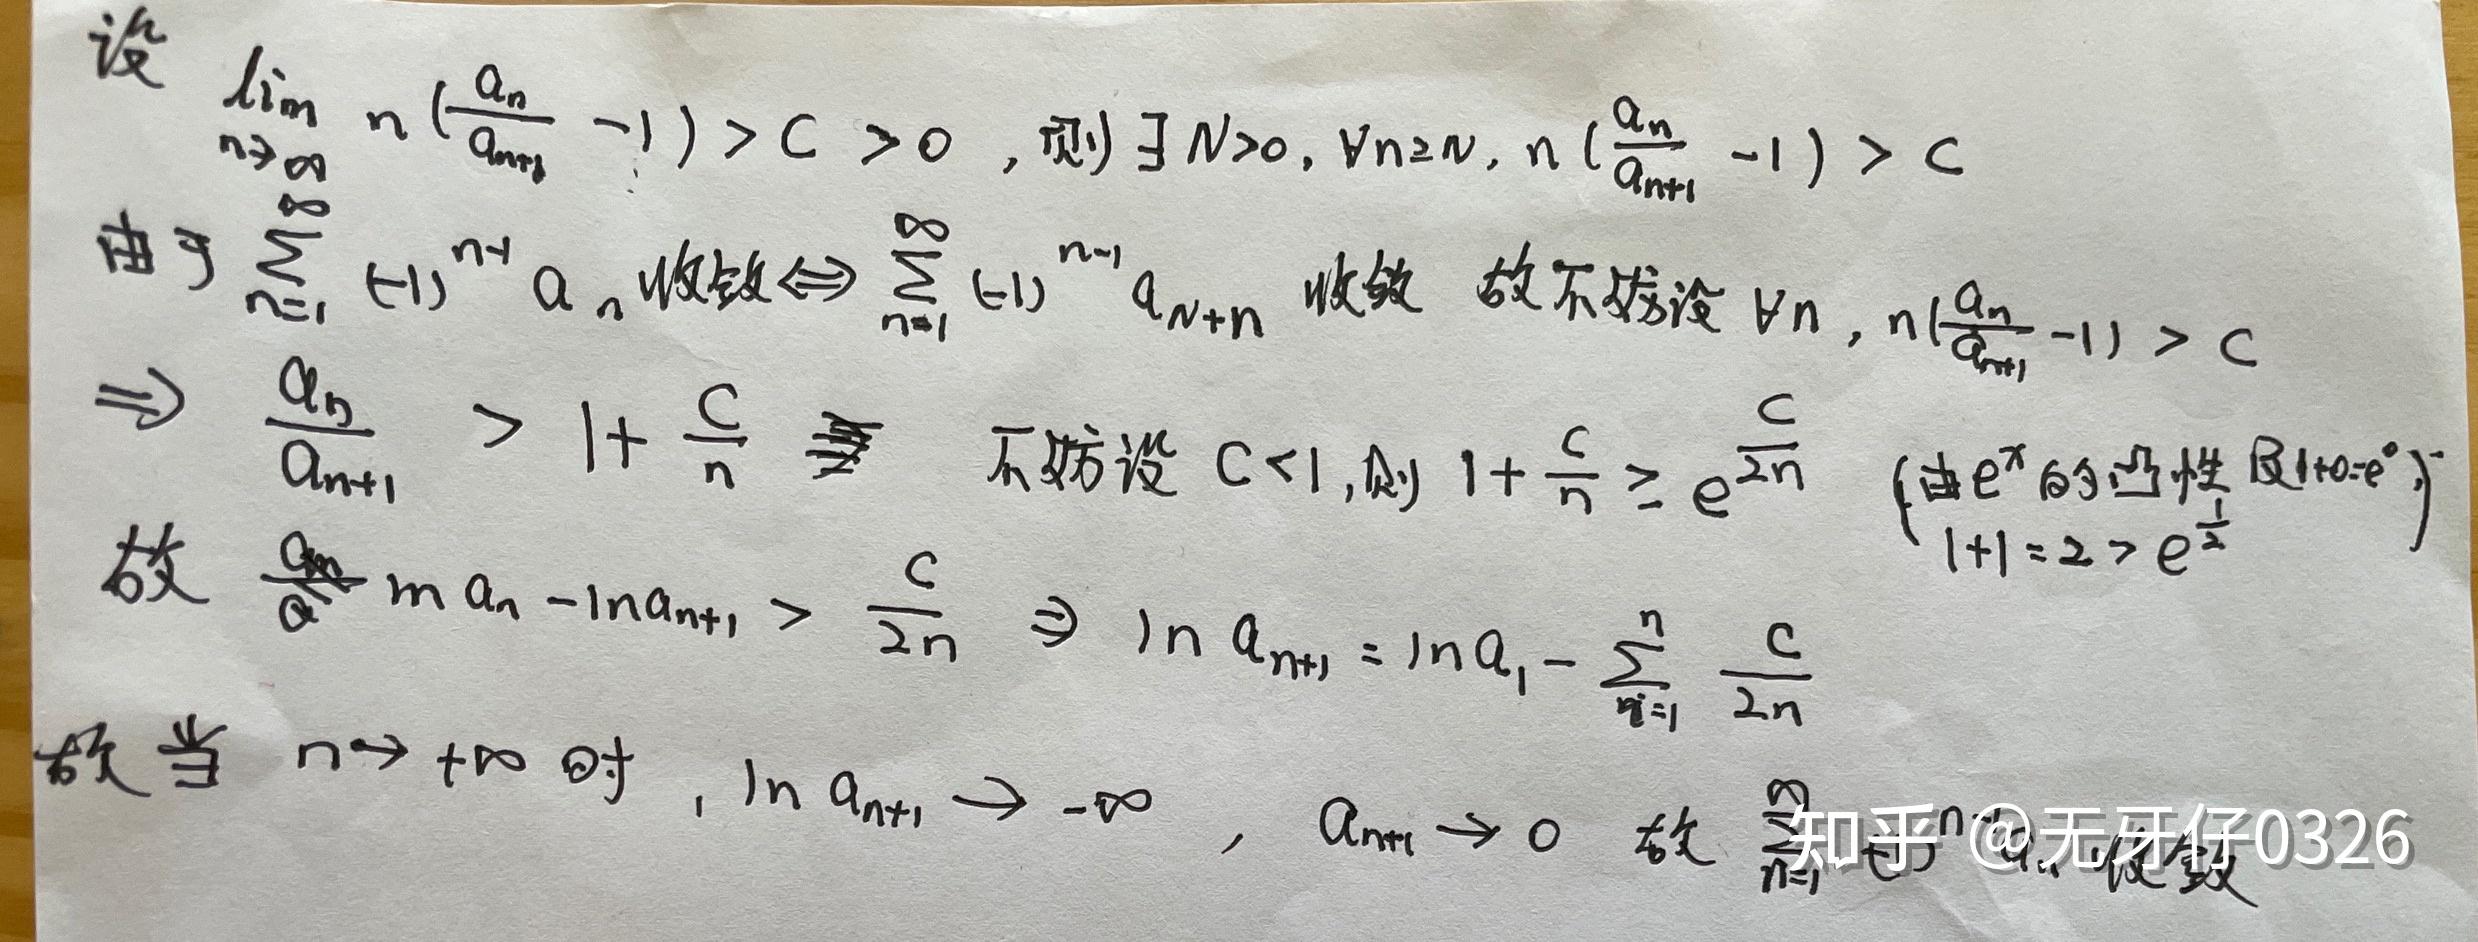 设 lim_{n→∞} n(a_n/a_{n+1} -1) > C > 0 , 则 ∃ N>0, ∀n≥N, n(a_n/a_{n+1} -1) > C
由于 ∑_{n=1}^{∞} (-1)^{n-1} a_n 收敛 ⇔ ∑_{n=1}^{∞} (-1)^{n-1} a_{N+n} 收敛 故不妨设 ∀n, n(a_n/a_{n+1} -1) > C
⇒ a_n/a_{n+1} > 1+ C/n 不妨设 C<1, 则 1+ C/n ≥ e^{C/2n} (由 e^x 的凸性 及 1+0=e^0,
1+1=2 > e^{1/2})
故 ln a_n - ln a_{n+1} > C/2n ⇒ ln a_{n+1} = ln a_1 - ∑_{i=1}^{n} C/2n
故当 n→+∞ 时, ln a_{n+1} → -∞ , a_{n+1} → 0 故 ∑_{n=1}^{∞} (-1)^{n-1} a_n 收敛
知乎 @无牙仔0326